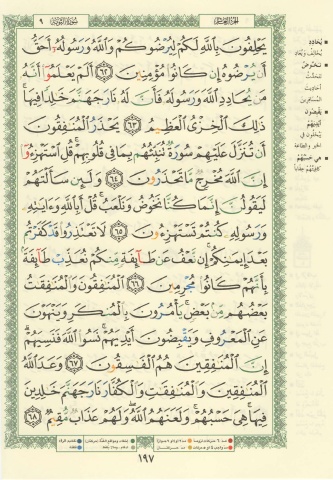 الجزء العاشر
سورة التوبة ٩
يَحْلِفُونَ بِاللَّهِ لَكُمْ لِيُرْضُوكُمْ وَاللَّهُ وَرَسُولُهُ أَحَقُّ
أَن يُرْضُوهُ إِن كَانُوا مُؤْمِنِينَ ٦٢ أَلَمْ يَعْلَمُوا أَنَّهُ
مَن يُحَادِدِ اللَّهَ وَرَسُولَهُ فَأَنَّ لَهُ نَارَ جَهَنَّمَ خَالِدًا فِيهَا
ذَلِكَ الْخِزْيُ الْعَظِيمُ ٦٣ يَحْذَرُ الْمُنَافِقُونَ
أَن تُنَزَّلَ عَلَيْهِمْ سُورَةٌ تُنَبِّئُهُم بِمَا فِي قُلُوبِهِمْ قُلِ اسْتَهْزِءُوا
إِنَّ اللَّهَ مُخْرِجٌ مَّا تَحْذَرُونَ ٦٤ وَلَئِن سَأَلْتَهُمْ
لَيَقُولُنَّ إِنَّمَا كُنَّا نَخُوضُ وَنَلْعَبُ قُلْ أَبِاللَّهِ وَءَايَاتِهِ
وَرَسُولِهِ كُنتُمْ تَسْتَهْزِءُونَ ٦٥ لَا تَعْتَذِرُوا قَدْ كَفَرْتُم
بَعْدَ إِيمَانِكُمْ إِن نَّعْفُ عَن طَائِفَةٍ مِّنكُمْ نُعَذِّبْ طَائِفَةً
بِأَنَّهُمْ كَانُوا مُجْرِمِينَ ٦٦ الْمُنَافِقُونَ وَالْمُنَافِقَاتُ
بَعْضُهُم مِّن بَعْضٍ يَأْمُرُونَ بِالْمُنكَرِ وَيَنْهَوْنَ
عَنِ الْمَعْرُوفِ وَيَقْبِضُونَ أَيْدِيَهُمْ نَسُوا اللَّهَ فَنَسِيَهُمْ
إِنَّ الْمُنَافِقِينَ هُمُ الْفَاسِقُونَ ٦٧ وَعَدَ اللَّهُ
الْمُنَافِقِينَ وَالْمُنَافِقَاتِ وَالْكُفَّارَ نَارَ جَهَنَّمَ خَالِدِينَ
فِيهَا هِيَ حَسْبُهُمْ وَلَعَنَهُمُ اللَّهُ وَلَهُمْ عَذَابٌ مُّقِيمٌ ٦٨
يُحَادِدِ
يُخَالِفْ وَيُعَادِ
نَخُوضُ
نَتَحَدَّثُ
أحاديث
المسافرين
يَقْبِضُونَ
أَيْدِيَهُمْ
يبخلون في
الخير والطاعة
هِيَ حَسْبُهُمْ
كافيتهم عقابًا
١٩٧